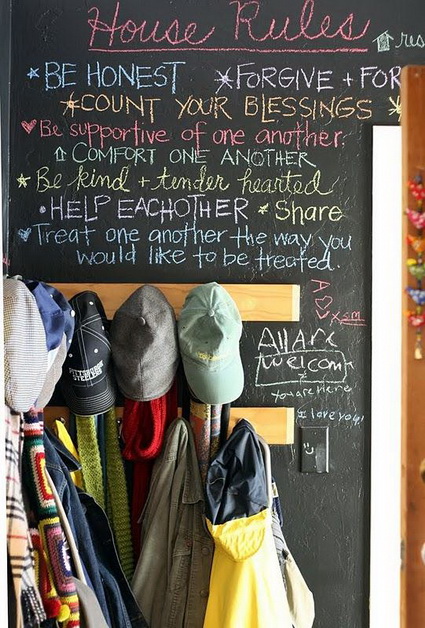 House Rules
res
*BE HONEST *FORGIVE + FOR
*COUNT YOUR BLESSINGS *
♥Be supportive of one another.
COMFORT ONE ANOTHER
*Be kind + tender hearted
•HELP EACHOTHER *Share
♥Treat one another the way you
would like to be treated.
All are
welcome
you are here
I love you!
PITTSBURGH
STEELERS